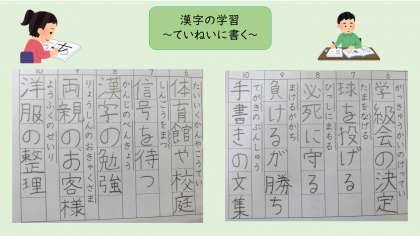 漢字の学習
～ていねいに書く～
6
体育館や校庭
たいいくかんやこうてい
7
信号を待つ
しんごうをまつ
8
漢字の勉強
かんじのべんきょう
9
両親のお客様
りょうしんのおきゃくさま
10
洋服の整理
ようふくのせいり
6
学級会の決定
がっきゅうかいのけってい
7
球を投げる
たまをなげる
8
必死に守る
ひっしにまもる
9
負けるが勝ち
まけるがかち
10
手書きの文集
てがきのぶんしゅう